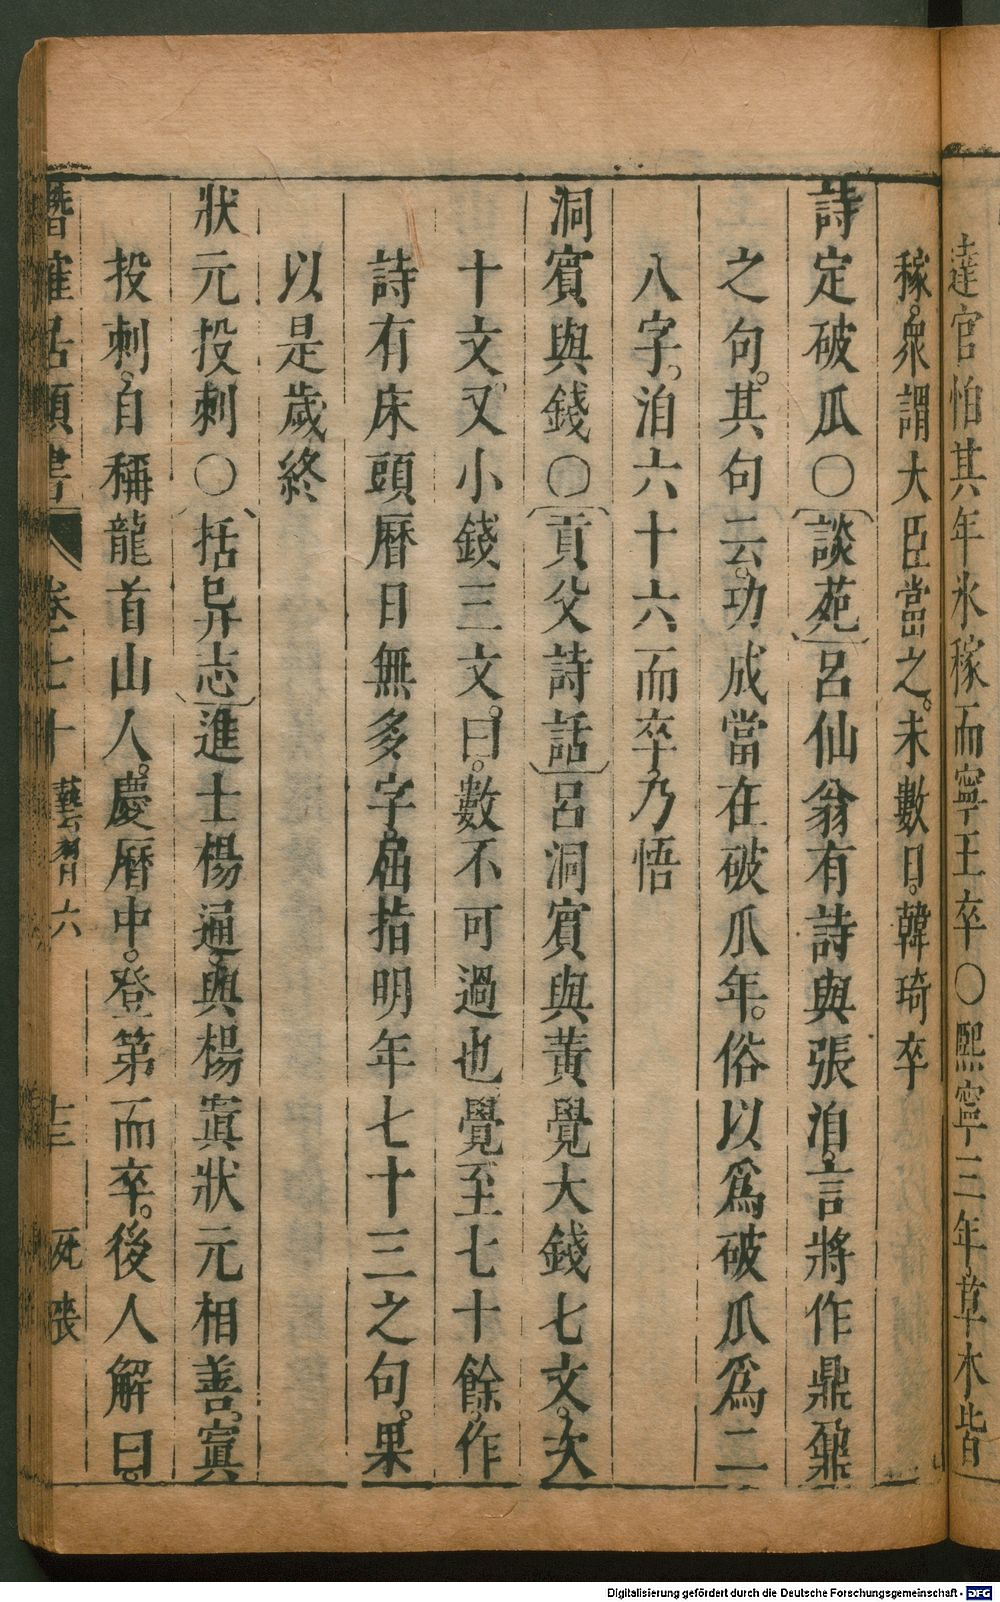 達官怕其年氷稼而寧王卒〇熙寧三年草木皆
稼衆謂大臣當之未數日韓琦卒
詩定破瓜〇談苑呂仙翁有詩與張洎言將作鼎鼐
之句其句云功成當在破瓜年俗以爲破瓜爲二
八字洎六十六而卒乃悟
洞賓與錢〇貢父詩話呂洞賓與黃覺大錢七文次
十文又小錢三文曰數不可過也覺至七十餘作
詩有床頭曆日無多字屈指明年七十三之句果
以是歲終
狀元投刺〇括异志進士楊通與楊寘狀元相善寘
投刺自稱龍首山人慶曆中登第而卒後人解曰
潛確居類書 卷七十 藝習六 十三 死喪
Digitalisierung gefördert durch die Deutsche Forschungsgemeinschaft - DFG